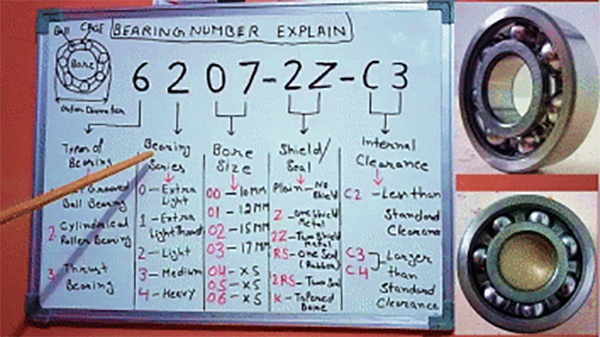 Ball CAGE
Bore
Outer Diameter
BEARING NUMBER EXPLAIN
6 2 07-2Z-C3
Types of
Bearing
Grooved
Ball Bearing
2 Cylindrical
Rollen Bearing
3 Thrust
Bearing
Bearing
Series
0 - Extra
Light
1 - Extra
Light Thrust
2 - Light
3 - Medium
4 - Heavy
Bore
Size
00 - 10MM
01 - 12MM
02 - 15MM
03 - 17MM
04 - X5
05 - X5
06 - X5
Shield/
Seal
Plain - No
Shield
Z - one Shield
Metal
2Z - Two Shield
Metal
RS - one Seal
(Rubber)
2RS - Two Seal
K - Tapered
Bore
Internal
Clearance
C2 - Less than
Standard
Clearance
C3
C4
Larger
than
Standard
Clearance